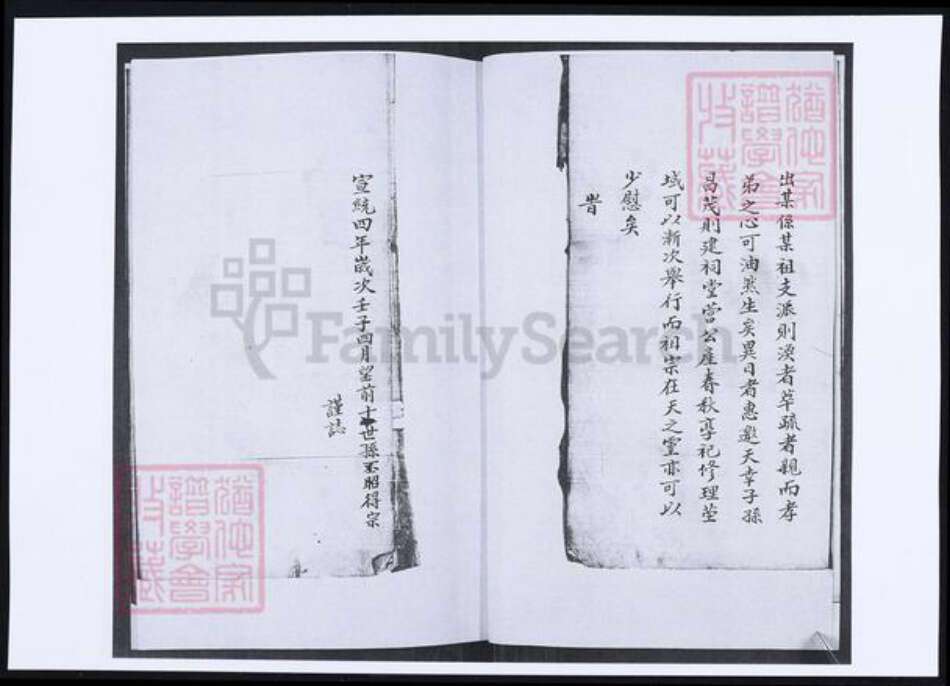 出某係某祖支派則渙者萃疏者親而孝
弟之心可油然生矣異日者惠邀天幸子孫
昌茂則建祠堂営公產春秋享祀修理塋
域可以漸次舉行而祖宗在天之靈亦可以
少慰矣
旹
宣統四年歲次壬子四月望前十世孫丕昭得宗
謹誌
FamilySearch
譜學會
收藏
譜學會
收藏